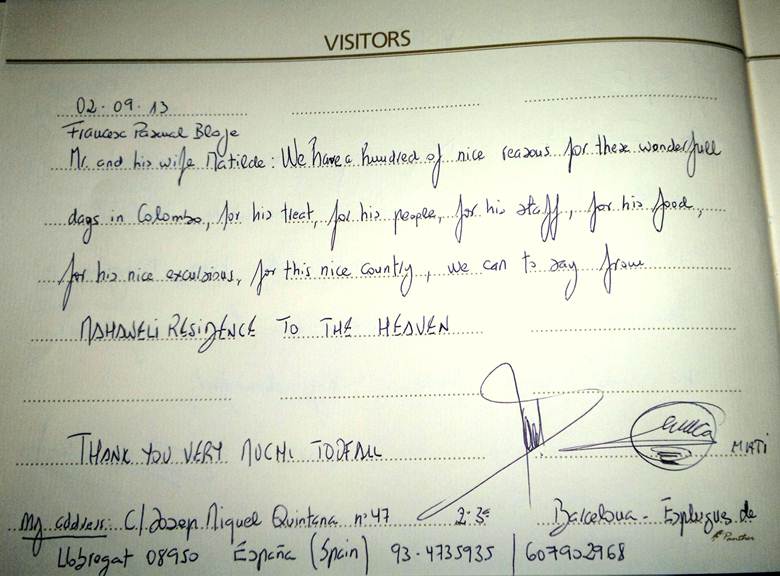 VISITORS
02·09·13
Francesc Pascual
Mr. and his wife Matilde: We have a hundred of nice reasons for these wonderfull
days in Colombo, for his treat, for his people, for his staff, for his food,
for his nice exculsions, for this nice country, we can to say from
MAHAWELI RESIDENCE TO THE HEAVEN
THANK YOU VERY MUCH!
MATI
My address: C/ Josep Miquel Quintana nº 47 2-3ª Barcelona - Esplugues de
Llobregat 08950 España (Spain) 93-4735935 | 607902968
Panther